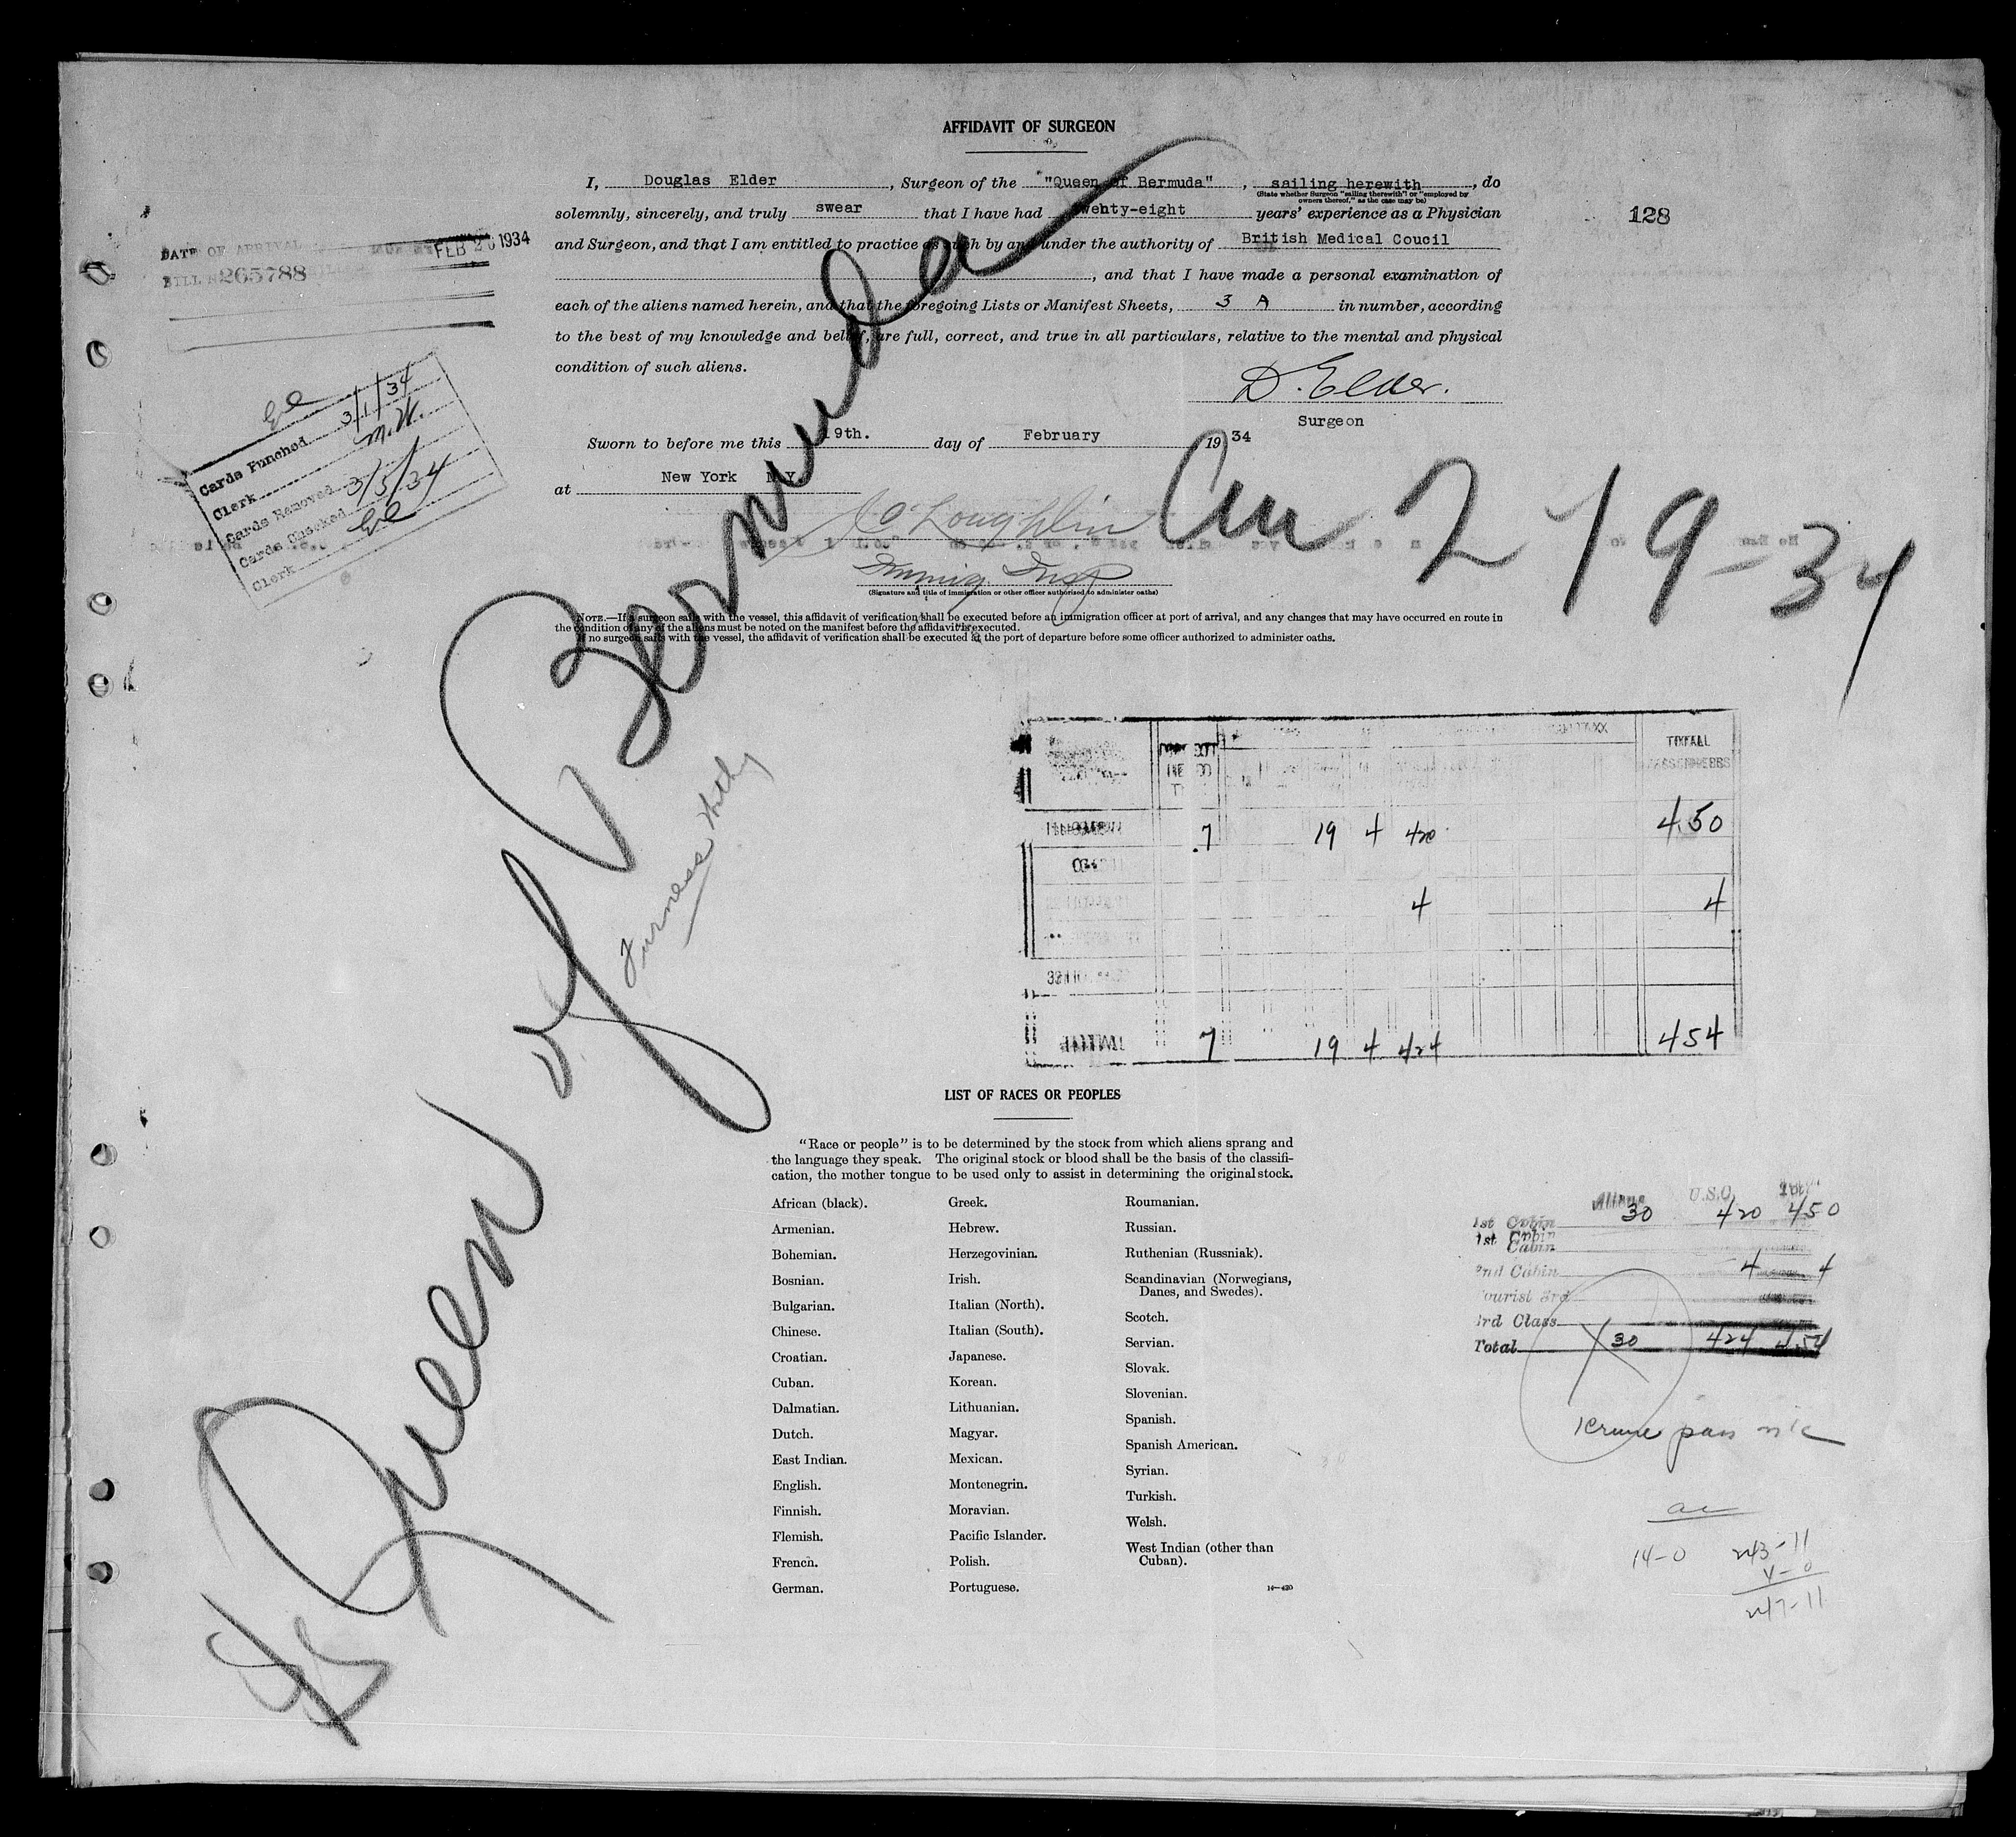 AFFIDAVIT OF SURGEON
I, Douglas Elder, Surgeon of the "Queen of Bermuda", sailing herewith, do
(State whether Surgeon "sailing therewith" or "employed by
owners thereof," as the case may be)
solemnly, sincerely, and truly swear that I have had twenty-eight years' experience as a Physician
and Surgeon, and that I am entitled to practice as such by and under the authority of British Medical Coucil
, and that I have made a personal examination of
each of the aliens named herein, and that the foregoing Lists or Manifest Sheets, 3 A in number, according
to the best of my knowledge and belief, are full, correct, and true in all particulars, relative to the mental and physical
condition of such aliens.
D. Elder.
Surgeon
Sworn to before me this 19th. day of February 1934
at New York N.Y.
Immig Insp
(Signature and title of immigration or other officer authorized to administer oaths)
NOTE.—If a surgeon sails with the vessel, this affidavit of verification shall be executed before an immigration officer at port of arrival, and any changes that may have occurred en route in
the condition of any of the aliens must be noted on the manifest before the affidavit is executed.
If no surgeon sails with the vessel, the affidavit of verification shall be executed at the port of departure before some officer authorized to administer oaths.
128
DATE OF ARRIVAL FEB 20 1934
265788
Cards Punched 3/1/34
Clerk M.W.
Cards Removed 3/5/34
Cards Checked
Clerk
SS Queen of Bermuda
Furness Withy
Arr 2 19-34
7 19 4 420 450
4 4
7 19 4 424 454
LIST OF RACES OR PEOPLES
"Race or people" is to be determined by the stock from which aliens sprang and
the language they speak. The original stock or blood shall be the basis of the classifi-
cation, the mother tongue to be used only to assist in determining the original stock.
African (black).
Armenian.
Bohemian.
Bosnian.
Bulgarian.
Chinese.
Croatian.
Cuban.
Dalmatian.
Dutch.
East Indian.
English.
Finnish.
Flemish.
French.
German.
Greek.
Hebrew.
Herzegovinian.
Irish.
Italian (North).
Italian (South).
Japanese.
Korean.
Lithuanian.
Magyar.
Mexican.
Montenegrin.
Moravian.
Pacific Islander.
Polish.
Portuguese.
Roumanian.
Russian.
Ruthenian (Russniak).
Scandinavian (Norwegians,
Danes, and Swedes).
Scotch.
Servian.
Slovak.
Slovenian.
Spanish.
Spanish American.
Syrian.
Turkish.
Welsh.
West Indian (other than
Cuban).
14—420
Aliens U.S.C. Total
1st Cabin 30 420 450
1st Cabin
2nd Cabin 4 4
Tourist 3rd
3rd Class
Total 30 424 454
14-0 243-11
4-0
247-11